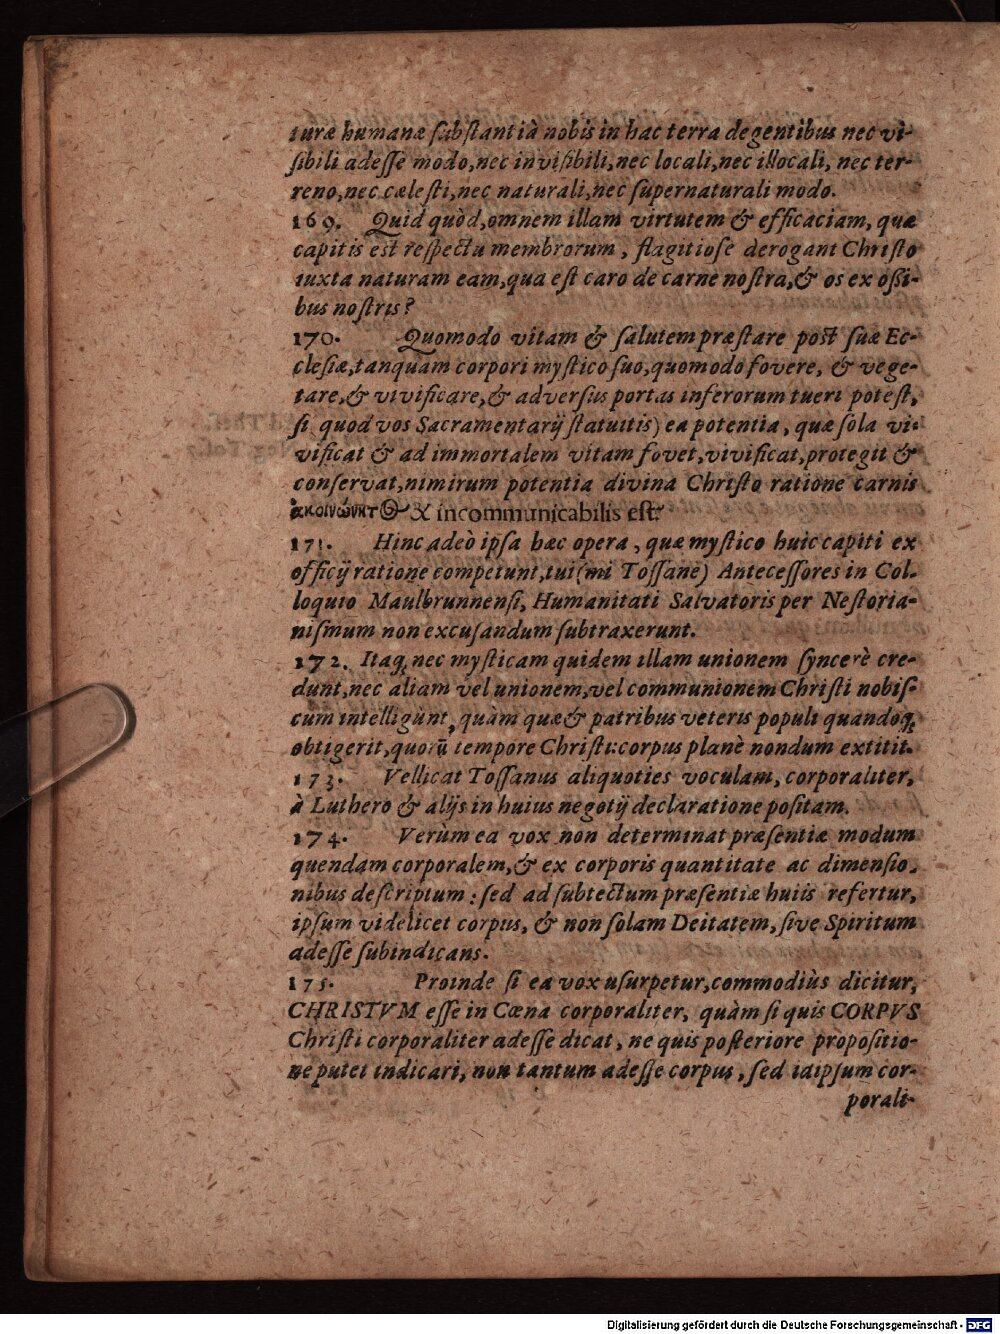 turæ humanæ substantiâ nobis in hac terra degentibus nec vi-
sibili adesse modo, nec invisibili, nec locali, nec illocali, nec ter-
reno, nec cælesti, nec naturali, nec supernaturali modo.
169. Quid quòd, omnem illam virtutem & efficaciam, quæ
capitis est respectu membrorum, flagitiose derogant Christo
iuxta naturam eam, qua est caro de carne nostra, & os ex ossi-
bus nostris?
170. Quomodo vitam & salutem præstare post suæ Ec-
clesiæ, tanquam corpori mystico suo, quomodo fovere, & vege-
tare, & vivificare, & adversus portas inferorum tueri potest,
si quod vos Sacramentarij statuitis) ea potentia, quæ sola vi-
vificat & ad immortalem vitam fovet, vivificat, protegit &
conservat, nimirum potentia divina Christo ratione carnis
ἀκοινώνητος & incommunicabilis est?
171. Hinc adeò ipsa hæc opera, quæ mystico huic capiti ex
officij ratione competunt, tui (mi Tossane) Antecessores in Col-
loquio Maulbrunnensi, Humanitati Salvatoris per Nestoria-
nismum non excusandum subtraxerunt.
172. Itaq; nec mysticam quidem illam unionem syncerè cre-
dunt, nec aliam vel unionem, vel communionem Christi nobis-
cum intelligunt, quàm quæ & patribus veteris populi quandoq;
obtigerit, quorū tempore Christi corpus planè nondum extitit.
173. Vellicat Tossanus aliquoties voculam, corporaliter,
à Luthero & alijs in huius negotij declaratione positam.
174. Verùm ea vox non determinat præsentiæ modum
quendam corporalem, & ex corporis quantitate ac dimensio-
nibus descriptum: sed ad subiectum præsentiæ huiis refertur,
ipsum videlicet corpus, & non solam Deitatem, sive Spiritum
adesse subindicans.
175. Proinde si ea vox usurpetur, commodiùs dicitur,
CHRISTVM esse in Cœna corporaliter, quàm si quis CORPVS
Christi corporaliter adesse dicat, ne quis posteriore propositio-
ne putet indicari, non tantum adesse corpus, sed idipsum cor-
porali-
Digitalisierung gefördert durch die Deutsche Forschungsgemeinschaft - DFG